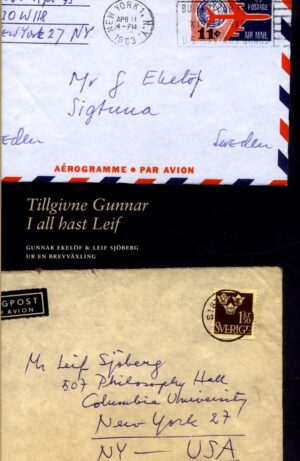 30 W 118
New York 27 NY
NEW YORK 1, N.Y.
APR 11
4-PM
1963
POSTAGE
11¢
AIR MAIL
Mr G Ekelöf
Sigtuna
eden
Sweden
AÉROGRAMME • PAR AVION
Tillgivne Gunnar
I all hast Leif
GUNNAR EKELÖF & LEIF SJÖBERG
UR EN BREVVÄXLING
GPOST
AVION
1 KR 50
SVERIGE
Mr Leif Sjöberg
507 Philosophy Hall
Columbia University
New York 27
NY — USA